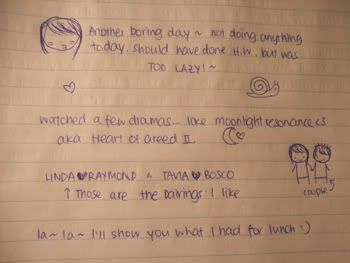 Another boring day ~ not doing anything
today. should have done H.W. but was
TOO LAZY! ~
watched a few dramas... like moonlight resonance <3
aka Heart of Greed II.
LINDA ♥ RAYMOND & TAVIA ♥ BOSCO
↑ Those are the pairings I like
couple
la~ la~ I'll show you what I had for lunch :)